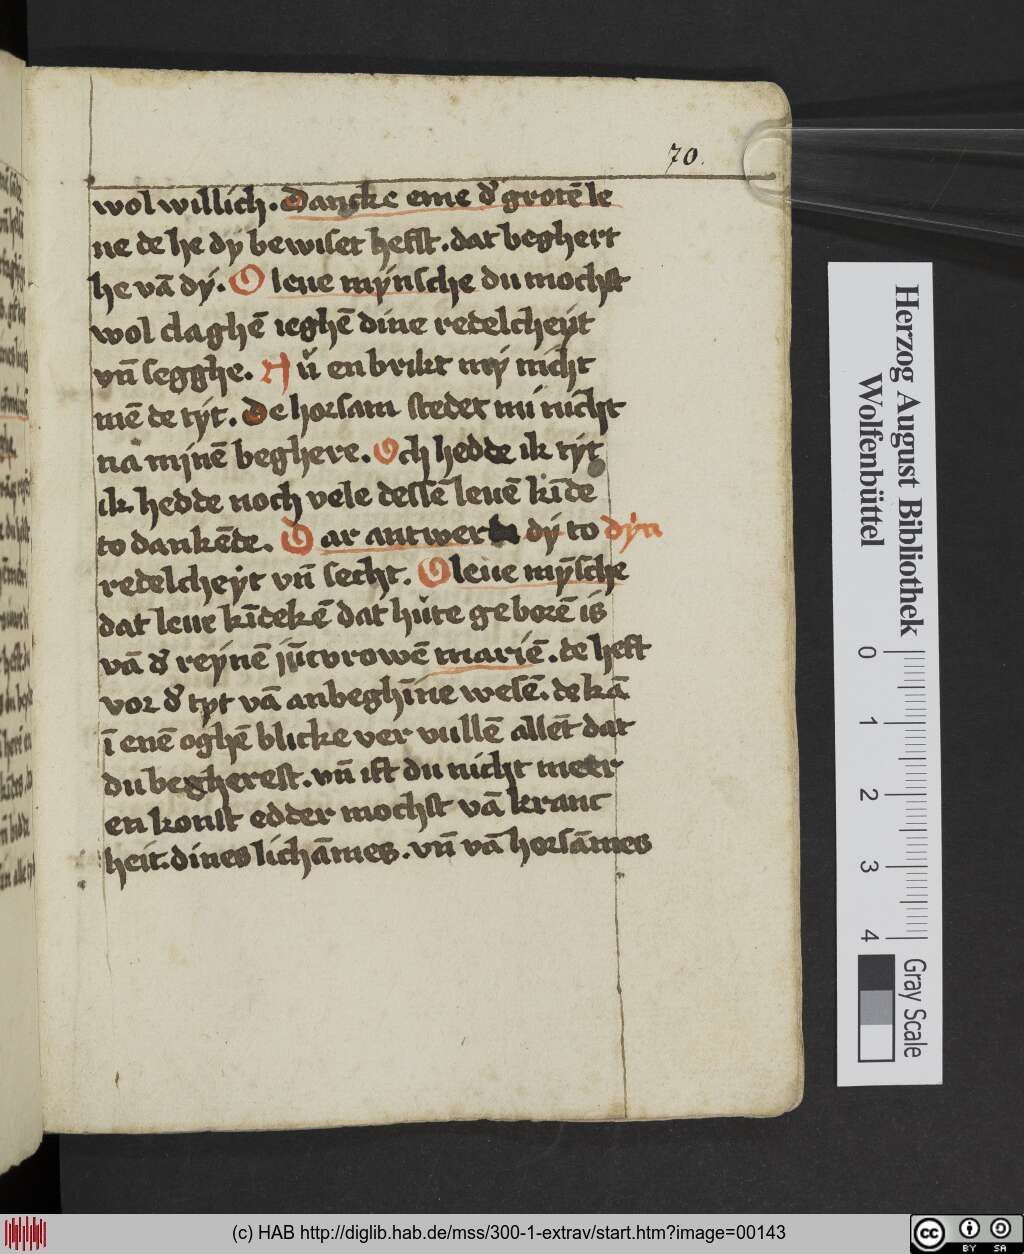 70.
wol willich. Dancke eme dˀ grotē le
ue de he dÿ bewiset hefft. dat beghert
he vā dÿ. O leue mÿnsche du mochst
wol claghē ieghē dine redelcheÿt
vn̄ segghe. Nů en brikt mÿ nicht
mē de tÿt. De horsam stedet mi nicht
na mÿnē beghere. Och hedde ik tÿt
ik hedde noch vele dessē leuē kīde
to dankēde. Dar antwerde dÿ to dÿn
redelcheÿt vn̄ secht. O leue mȳsche
dat leue kīdekē dat hůte geborē is
vā dˀ reÿnē jūcvrowē mariē. de heft
vor dˀ tyt vā anbeghīne wesē. de kā
ī enē oghē blicke ver vullē allēt dat
du begherest. vn̄ ift du nicht meer
en konst edder mochst vā kranc
heit. dines lichāmes. vn̄ vā horsāmes
Herzog August Bibliothek
Wolfenbüttel
0 1 2 3 4
Gray Scale
(c) HAB http://diglib.hab.de/mss/300-1-extrav/start.htm?image=00143
cc BY SA